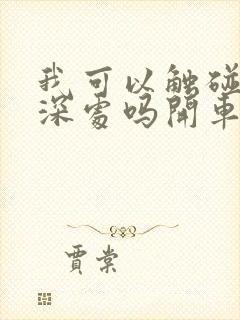 我可以触碰
深處吗開車
賈棠